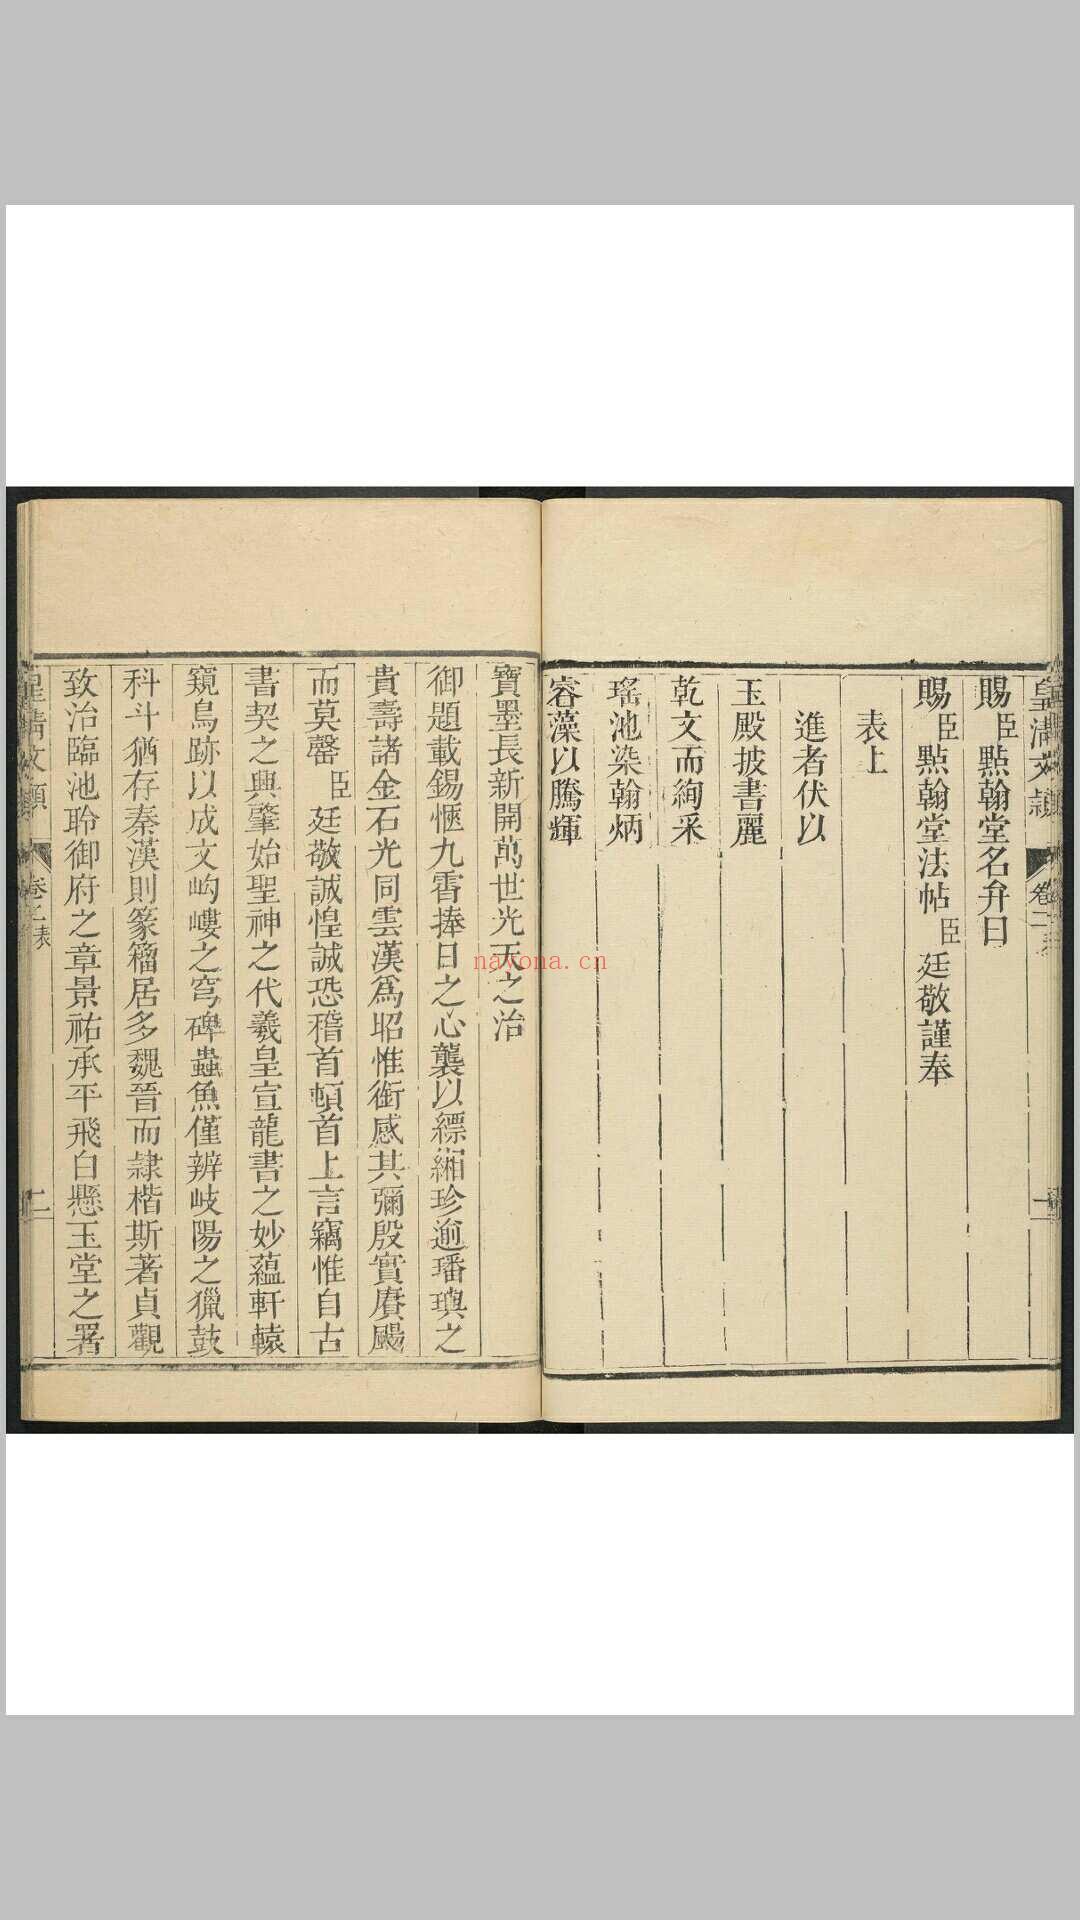 賜臣點翰堂名弁曰
賜臣點翰堂法帖臣廷敬謹奉
表上
進者伏以
玉殿披書麗
乾文而絢采
瑤池染翰炳
睿藻以騰輝
寶墨長新開萬世光天之治
御題載錫愜九霄捧日之心襲以縹緗珍逾璠璵之
貴壽諸金石光同雲漢為昭惟銜感其彌殷實賡颺
而莫罄臣廷敬誠惶誠恐稽首頓首上言竊惟自古
書契之興肇始聖神之代羲皇宣龍書之妙蘊軒轅
窺鳥跡以成文岣嶁之穹碑蟲魚僅辨岐陽之獵鼓
科斗猶存秦漢則篆籀居多魏晉而隷楷斯著貞觀
致治臨池聆御府之章景祐承平飛白懸玉堂之署
皇清文穎
卷之表
二
nayona.cn